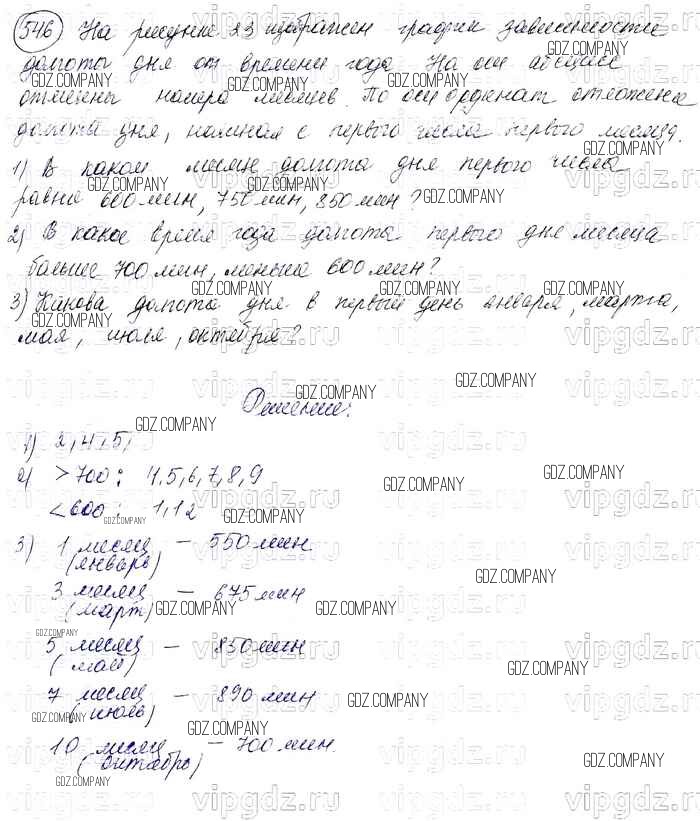 546 На рисунке 23 изображен график зависимости
долготы дня от времени года. На оси абсцисс
отмечены номера месяцев. По оси ординат отложена
долгота дня, начиная с первого числа первого месяца.
1) В каком месяце долгота дня первого числа
равна 600 мин, 750 мин, 850 мин?
2) В какое время года долгота первого дня месяца
больше 700 мин, меньше 600 мин?
3) Какова долгота дня в первый день января, марта,
мая, июля, октября?
Решение:
1) 2, 4, 5,
2) >700: 4,5,6,7,8,9
<600: 1,12
3) 1 месяц — 550 мин.
(январь)
3 месяц — 675 мин
(март)
5 месяц — 850 мин
(май)
7 месяц — 890 мин
(июль)
10 месяц — 700 мин.
(октябрь)
GDZ.COMPANY
vipgdz.ru